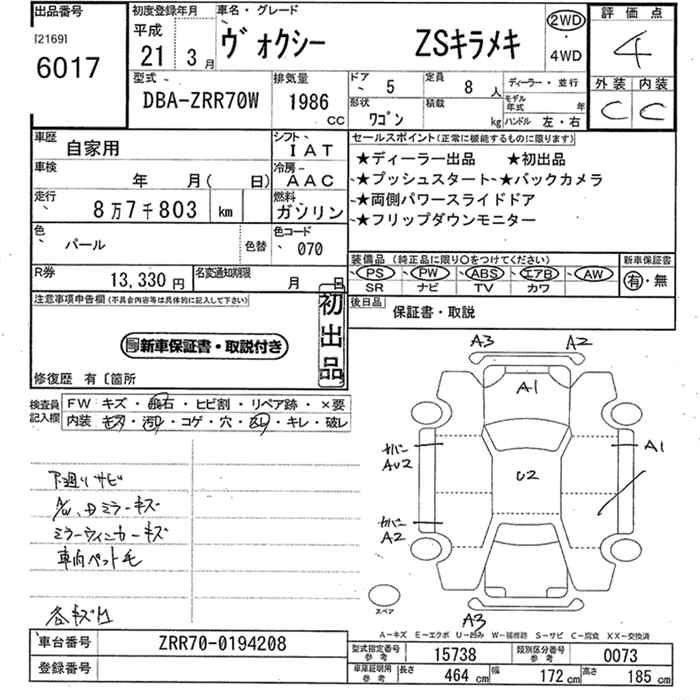 出品番号 初度登録年月 車名・グレード 評価点
[2169] 平成 ヴォクシー ZSキラメキ 2WD 4
6017 21年 3月 4WD
型式 排気量 ドア 5 定員 8人 ディーラー・並行 外装 内装
DBA-ZRR70W 1986cc 形状 ワゴン 積載 kg モデル年式 年 C C
ハンドル 左・右
車歴 自家用 シフト IAT セールスポイント(正常に機能するものに限ります)
車検 年 月( 日) 冷房 AAC ★ディーラー出品 ★初出品
★プッシュスタート ★バックカメラ
走行 8万7千803 km 燃料 ガソリン ★両側パワースライドドア
★フリップダウンモニター
色 パール 色替 色カラーコード 070
装備品(純正品に限り○をつけてください) 新車保証書
R券 13,330円 名変通知期限 月 日 PS PW ABS エアB AW 有・無
SR ナビ TV カワ
注意事項申告欄(不具合内容等は具体的に記入して下さい) 初出品 後日品 保証書・取説
新車保証書・取説付き
修復歴 有〔箇所
検査員記入欄 FW キズ・飛石・ヒビ割・リペア跡・×要
内装 キズ・汚れ・コゲ・穴・スレ・キレ・破レ
A3 A2
A1
カバー AU2 A1
U2
カバー A2
下廻りサビ
A/W、Dミラーキズ
ミラーウィンカーキズ
車内ペット毛
各キズ凹
スペア
A3
A-キズ E-エクボ U-凹み W-補修跡 S-サビ C-腐食 XX-交換済
車台番号 ZRR70-0194208 型式指定番号 参考 15738 類別区分番号 参考 0073
登録番号 車庫証明用 参考 長さ 464 cm 幅 172 cm 高さ 185 cm